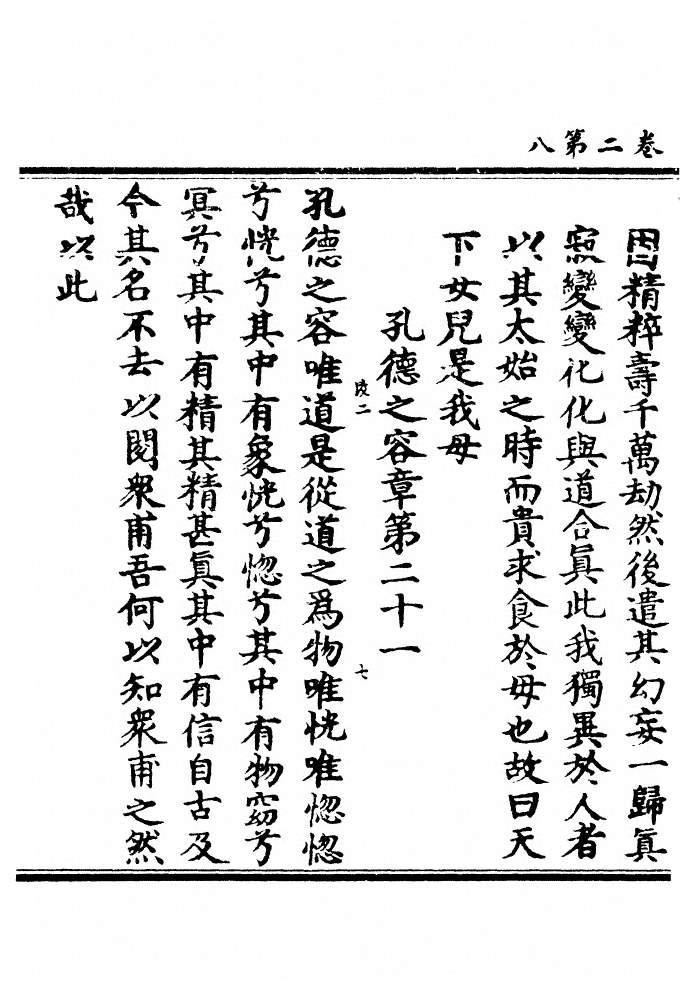 卷二第八
因精粹壽千萬劫然後遣其幻妄一歸眞
寂變變化化與道合眞此我獨異於人者
以其太始之時而貴求食於母也故曰天
下女兒是我母
孔德之容章第二十一
陵二
七
孔德之容唯道是從道之爲物唯恍唯惚惚
兮恍兮其中有象恍兮惚兮其中有物窈兮
冥兮其中有精其精甚眞其中有信自古及
今其名不去以閱衆甫吾何以知衆甫之然
哉以此